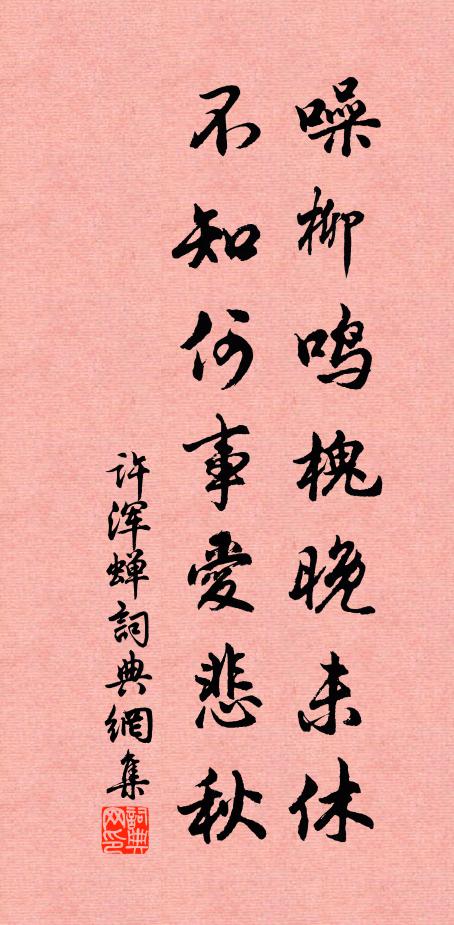 噪柳鸣槐晚未休
不知何事爱悲秋
许浑蝉詞典網集
詞典网印